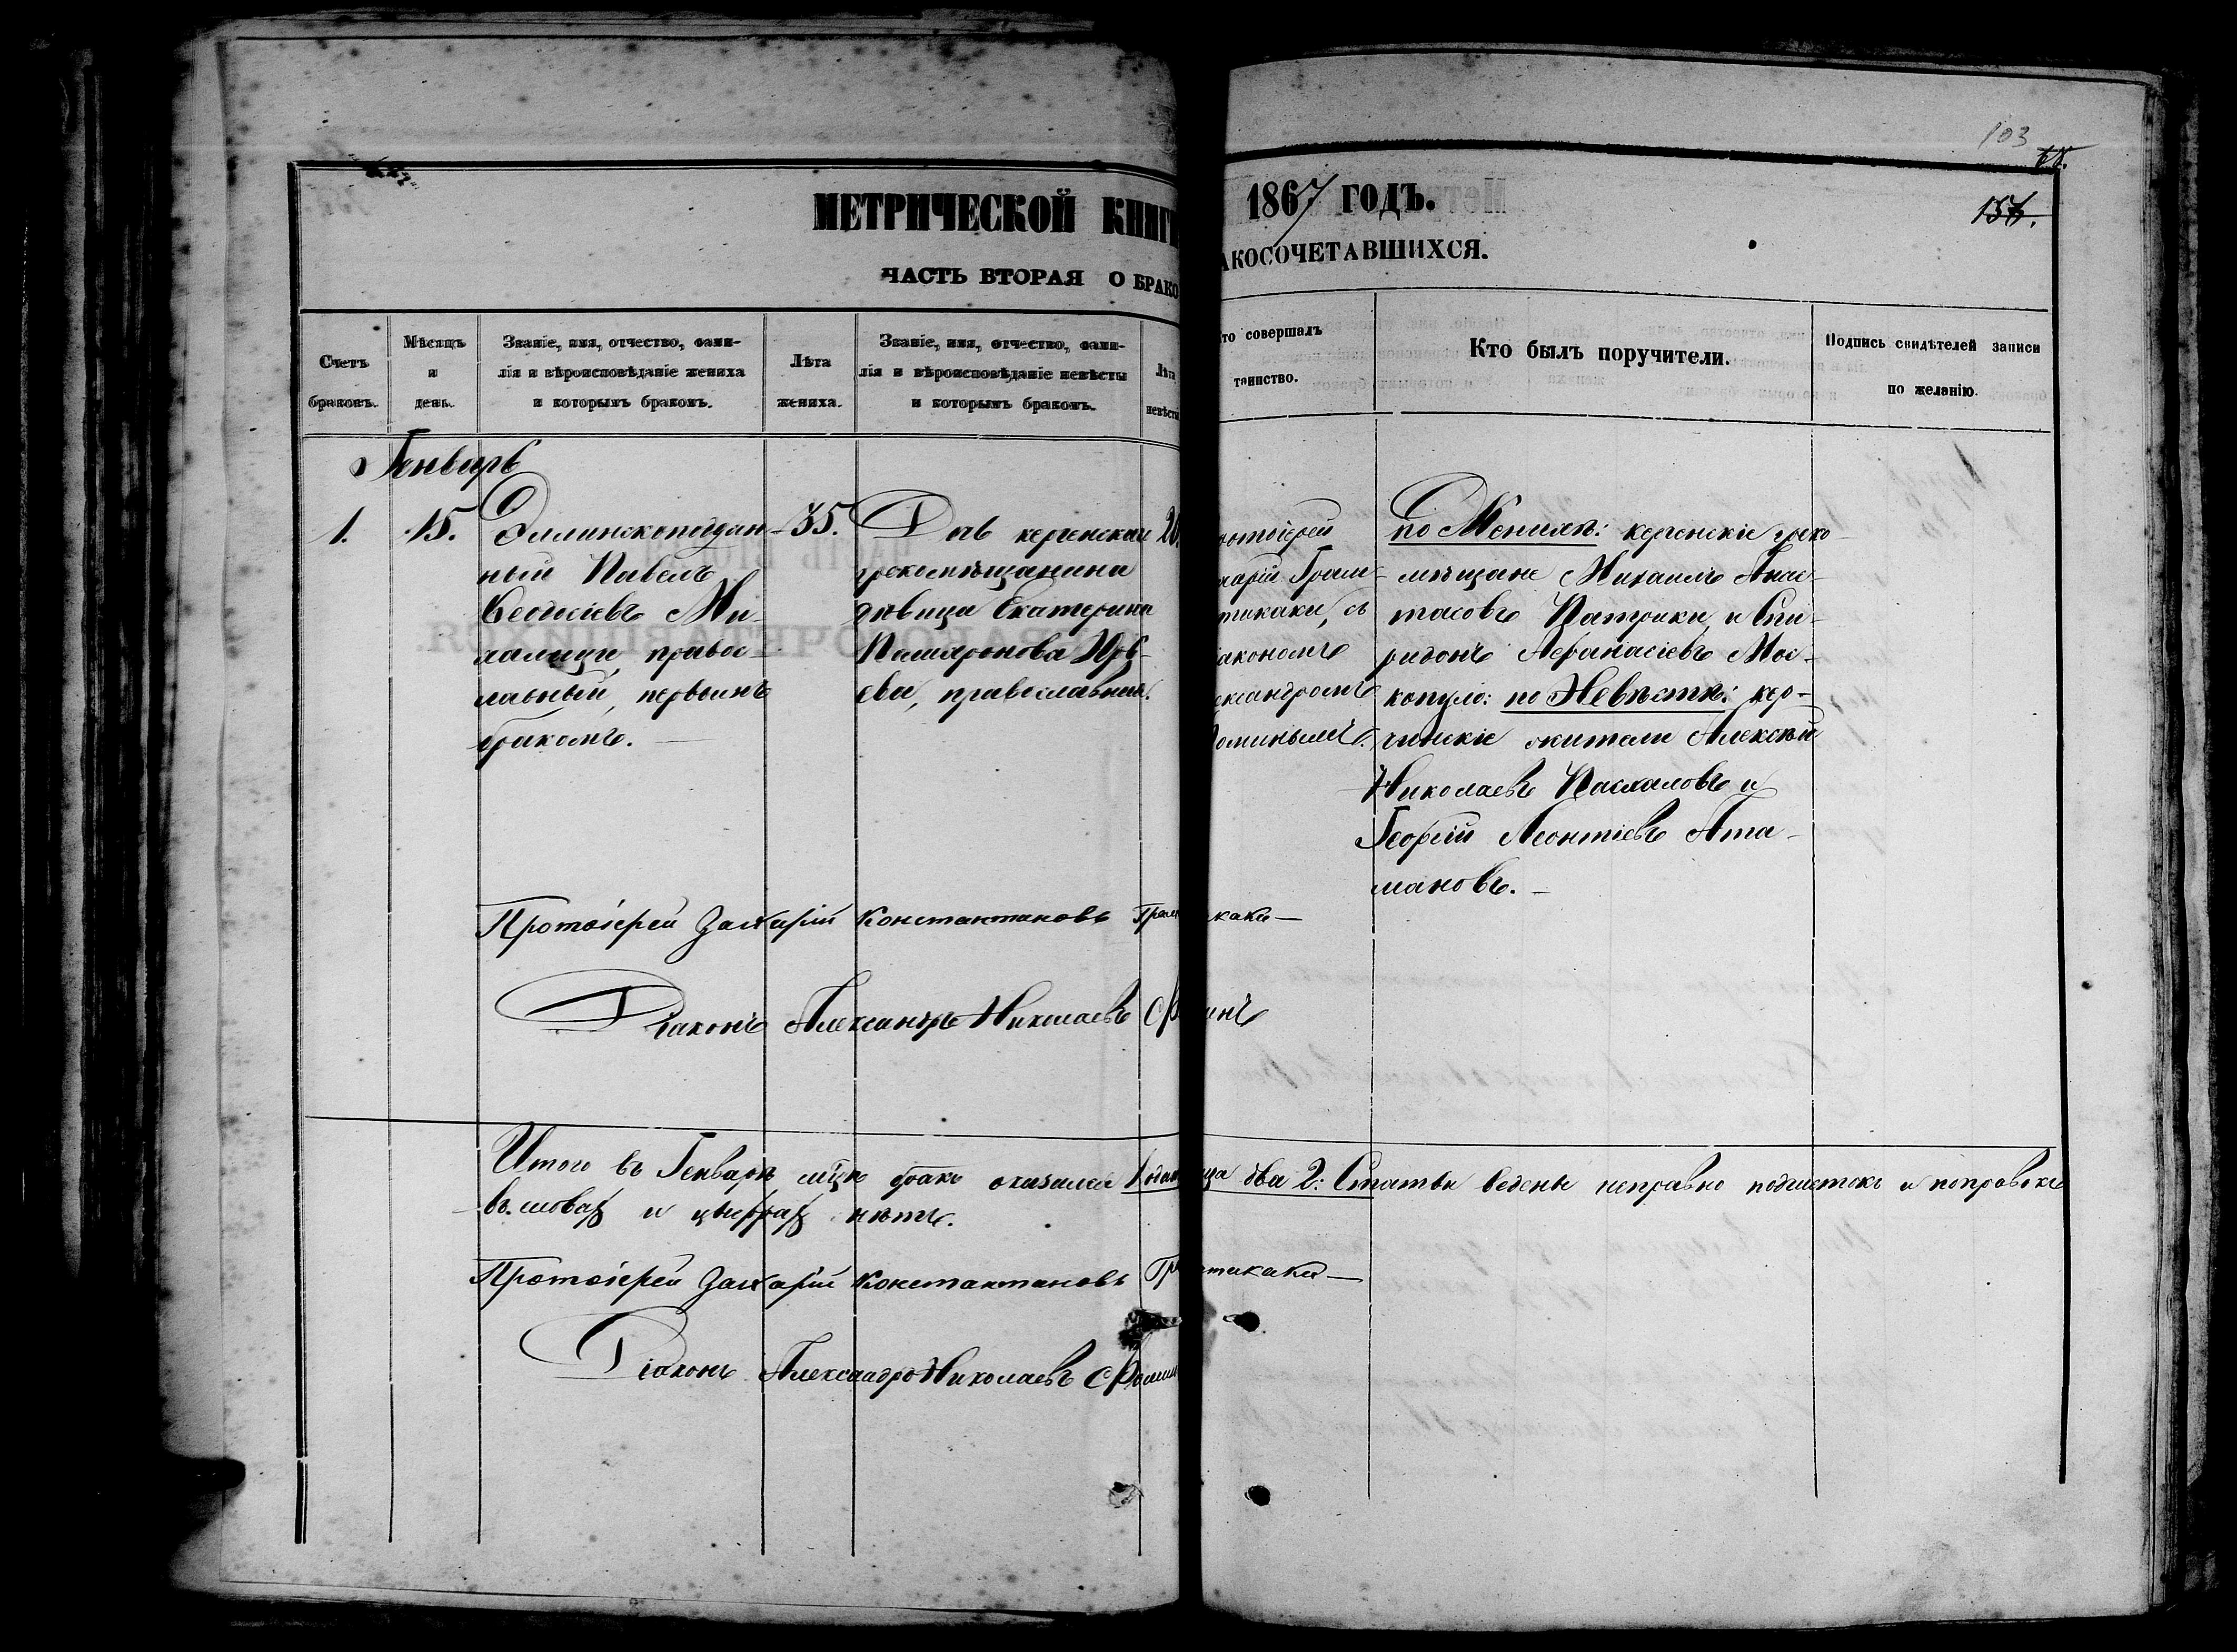 103
МЕТРИЧЕСКОЙ КНИГИ 1867 ГОДЪ.
156.
ЧАСТЬ ВТОРАЯ О БРАКОСОЧЕТАВШИХСЯ.
Счетъ браковъ.
Мѣсяцъ и день.
Званіе, имя, отчество, фами-
лія и вѣроисповѣданіе жениха
и которымъ бракомъ.
Лѣта
жениха.
Званіе, имя, отчество, фами-
лія и вѣроисповѣданіе невѣсты
и которымъ бракомъ.
Лѣта
невѣсты
то совершалъ
таинство.
Кто былъ поручители.
Подпись свидѣтелей записи
по желанію.
Генварь
1.
15.
Эллинскоподдан-
ный Павелъ
православный, первымъ
бракомъ.
35.
Дочь керченскаго
грекомѣщанина
дѣвица Екатерина
православная.
20.
отоіерей
харій Грам-
тикаки, съ
акономъ
ександромъ
оминымъ.
по Женихѣ: керченскіе греко-
мѣщане Михаилъ Анас-
тасовъ Патрики, и Спи-
ридонъ Афанасіевъ Мос-
копуло: по Невѣстѣ: кер-
ченскіе жители Алексѣй
Николаевъ Пасхаловъ и
Георгій Леонтіевъ Ата-
мановъ.
Протоіерей Захарій Константиновъ Грам каки
Діаконъ Александръ Николаевъ Ѳ инъ
Итого въ Генварѣ мцѣ бракъ оказался 1 лица два 2: Статьи ведены исправно подчистокъ и поправокъ
въ словах и цыфрах нѣтъ.
Протоіерей Захарій Константиновъ Гр тикаки
Діаконъ Александръ Николаевъ Фомин